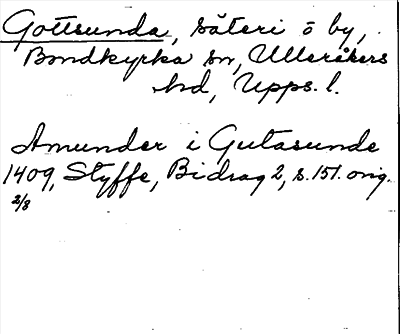 Gottsunda, säteri o by,
Bondkyrka sn, Ulleråkers
hd, Upps. l.
Amunder i Gutasunde
1409, Styffe, Bidrag 2, s. 151. orig.
2/8